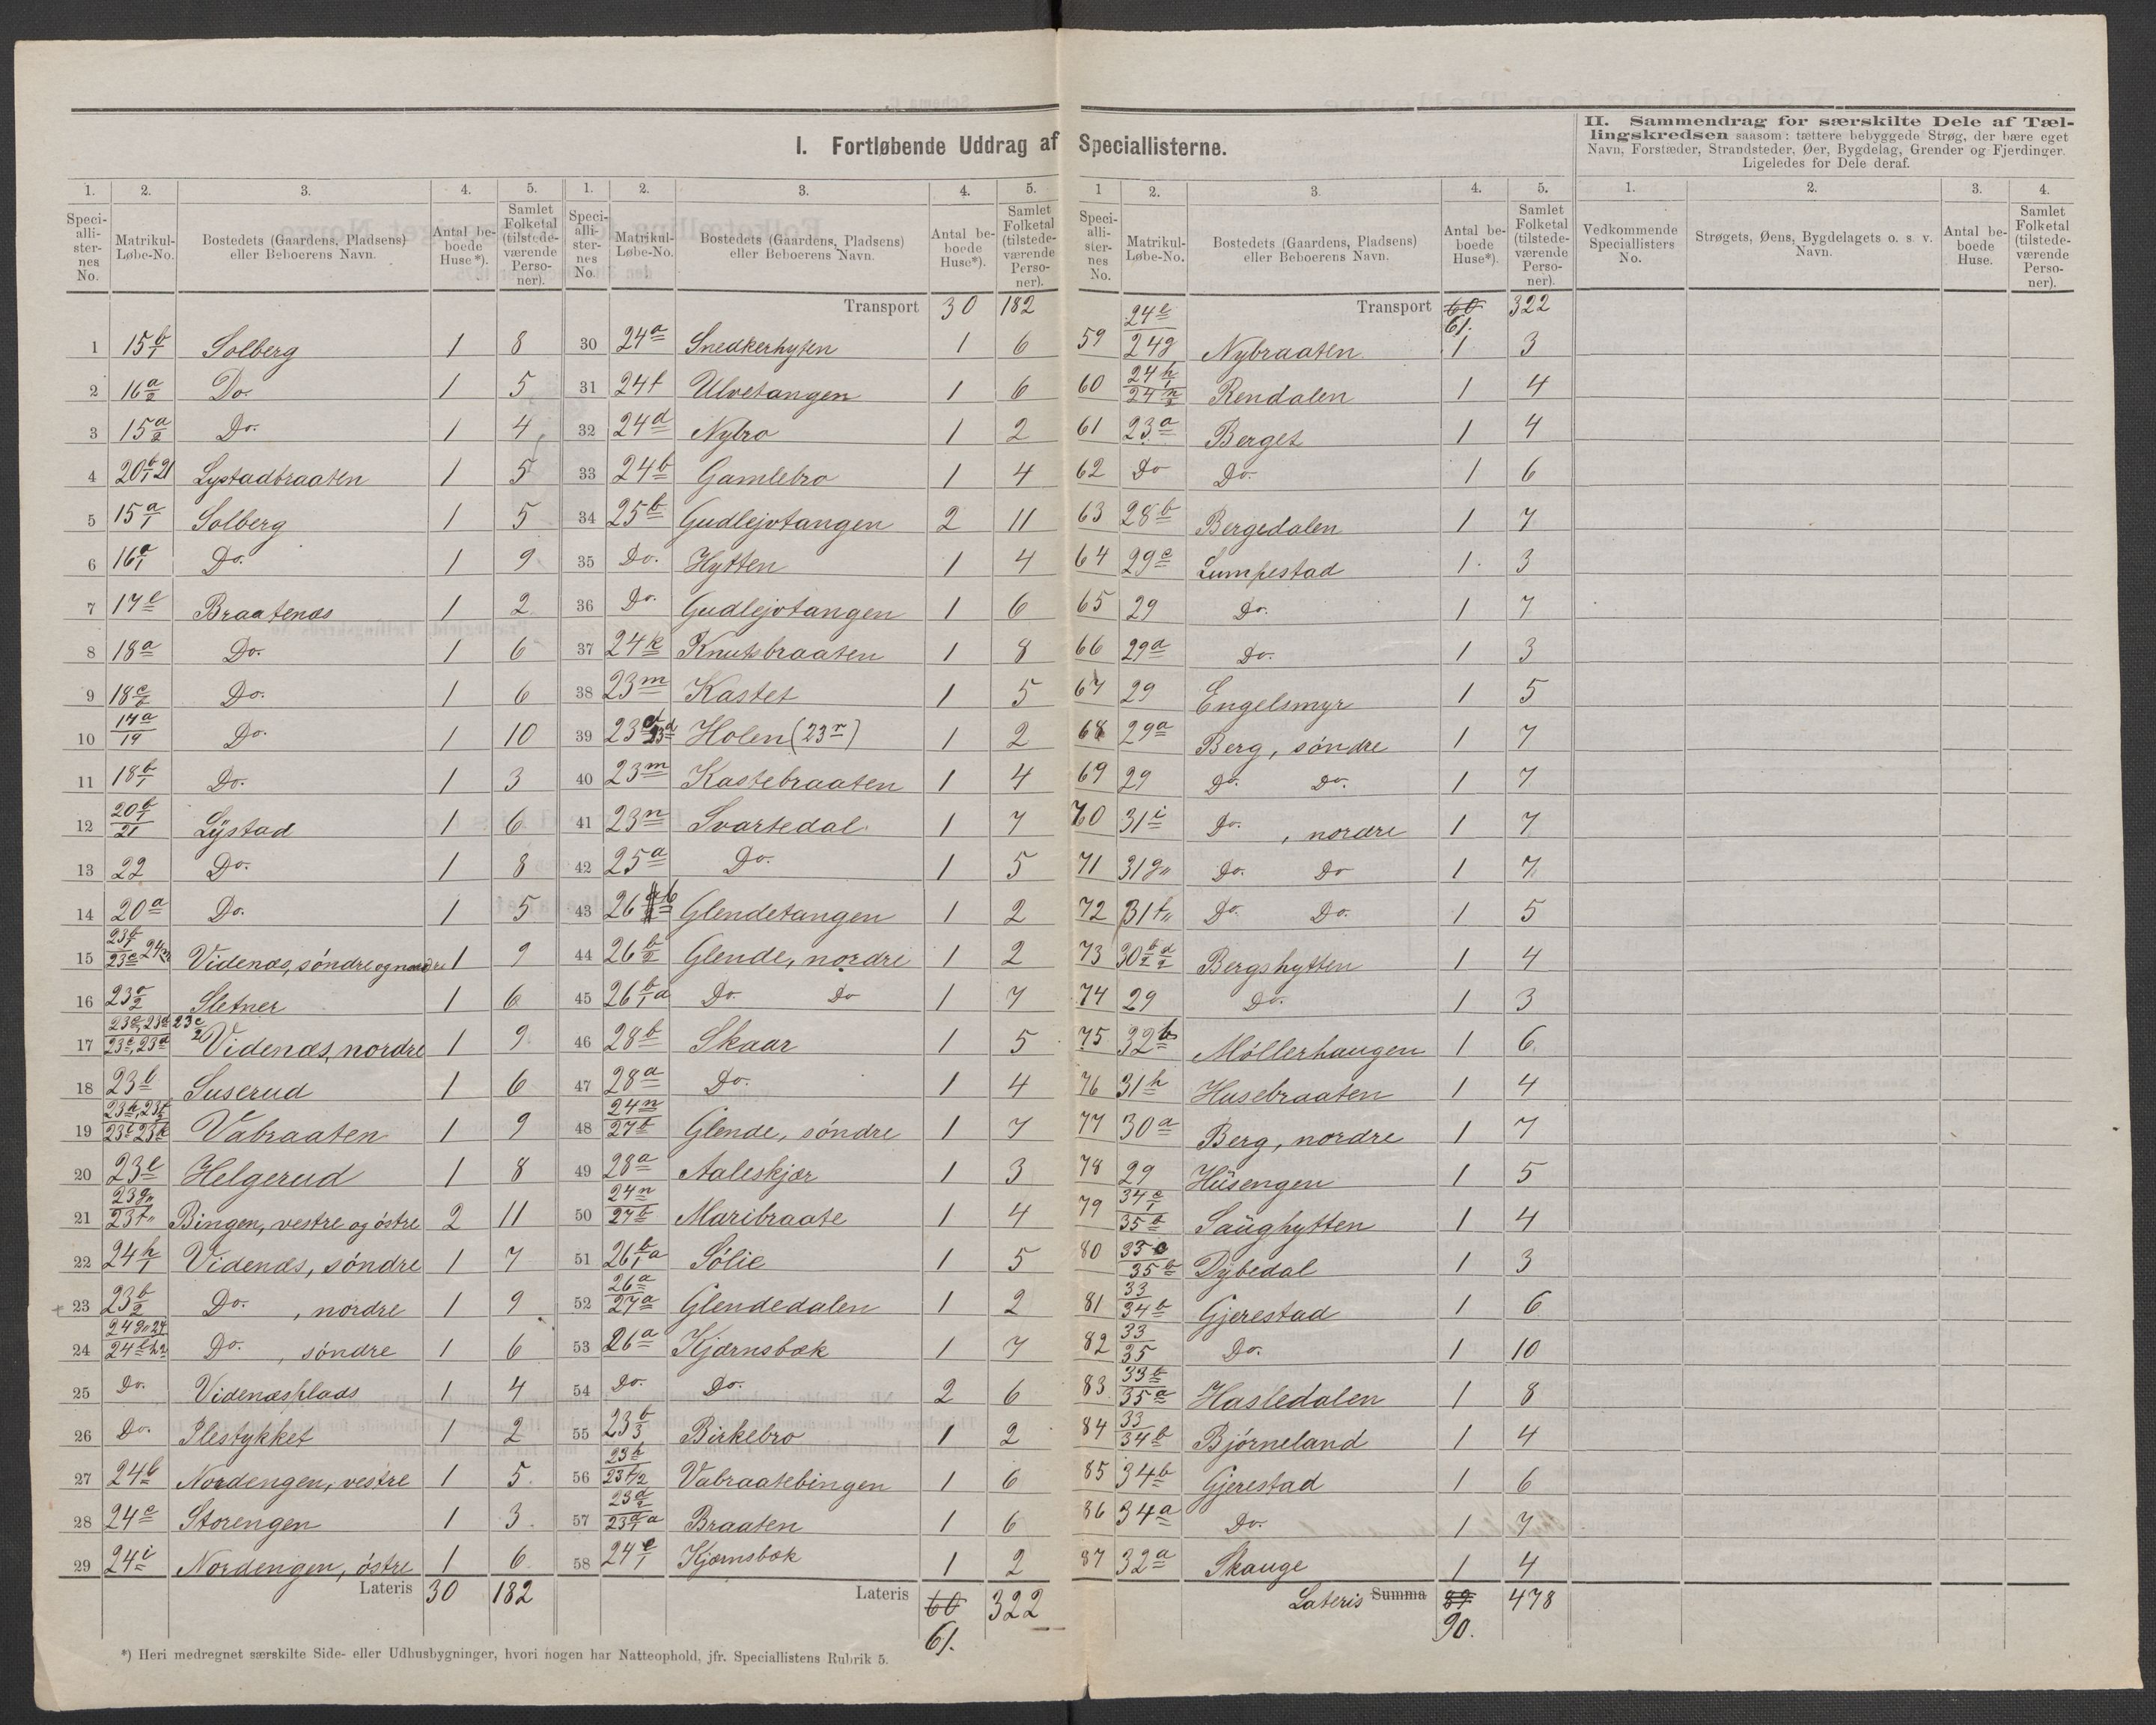 I. Fortløbende Uddrag af Speciallisterne.
II. Sammendrag for særskilte Dele af Tællingskredsen saasom: tættere bebyggede Strøg, der bære eget
Navn, Forstæder, Strandsteder, Øer, Bygdelag, Grender og Fjerdinger.
Ligeledes for Dele deraf.
1. 2. 3. 4. 5.
Speciallisternes No. Matrikul-Løbe-No. Bostedets (Gaardens, Pladsens) eller Beboerens Navn. Antal beboede Huse*). Samlet Folketal (tilstedeværende Personer).
1 15 b/1 Solberg 1 8
2 16 a/2 Do. 1 5
3 15 a/2 Do. 1 4
4 20 b/1 21 Lystadbraaten 1 5
5 15 a/1 Solberg 1 5
6 16 a/1 Do. 1 9
7 17c Braatenæs 1 2
8 18a Do. 1 6
9 18 c/2 Do. 1 6
10 17a/19 Do. 1 10
11 18 b/1 Do. 1 3
12 20 b/1 21 Lystad 1 6
13 22 Do. 1 8
14 20a Do. 1 5
15 Videnæs, søndre og nordre 1 9
16 Sletner 1 6
17 Videnæs, nordre 1 9
18 Suserud 1 6
19 Vabraaten 1 9
20 23e Helgerud 1 8
21 23g 23f Bingen, vestre og østre 2 11
22 24 h/1 Videnæs, søndre 1 7
23 23 b/2 Do. , nordre 1 9
24 Do. , søndre 1 6
25 Do. Videnæsplads 1 4
26 Do. Plestykket 1 2
27 Nordengen, vestre 1 5
28 24c Storengen 1 3
29 24i Nordengen, østre 1 6
Lateris 30 182
1. 2. 3. 4. 5.
Speciallisternes No. Matrikul-Løbe-No. Bostedets (Gaardens, Pladsens) eller Beboerens Navn. Antal beboede Huse*). Samlet Folketal (tilstedeværende Personer).
Transport 30 182
30 24a Snedkerhyten 1 6
31 24f Ulvetangen 1 6
32 24d Nybro 1 2
33 24b Gamlebro 1 4
34 25b Gudlejvtangen 2 11
35 Do. Hytten 1 4
36 Do. Gudlejvtangen 1 6
37 24k Knutsbraaten 1 8
38 23m Kastet 1 5
39 Holen (23r) 1 2
40 23m Kastebraaten 1 4
41 23n Svartedal 1 7
42 25a Do. 1 5
43 26 b Glendetangen 1 2
44 26 b/2 Glende, nordre 1 2
45 26 b/1 a Do. Do 1 7
46 28b Skaar 1 5
47 28a Do. 1 4
48 24n 27b Glende, søndre 1 7
49 28a Aaleskjær 1 3
50 24n 27b Maribraate 1 4
51 26 b/1 a Sølie 1 5
52 26a 27a Glendedalen 1 2
53 26a Kjærnsbæk 1 7
54 Do. Do. 2 6
55 23 b/3 Birkebro 1 2
56 Vabraatebingen 1 6
57 Braaten 1 6
58 24 e/1 Kjærnsbæk 1 2
Lateris 60 322
61.
1 2. 3. 4. 5.
Speciallisternes No. Matrikul-Løbe-No. Bostedets (Gaardens, Pladsens) eller Beboerens Navn. Antal beboede Huse*). Samlet Folketal (tilstedeværende Personer).
Transport 60 322
61.
59 24e 24g Nybraaten 1 3
60 Rendalen 1 4
61 23a Berget 1 4
62 Do Do. 1 6
63 28b Bergedalen 1 7
64 29c Lumpestad 1 3
65 29 Do. 1 7
66 29a Do. 1 3
67 29 Engelsmyr 1 5
68 29a Berg, søndre 1 7
69 29 Do. Do. 1 7
70 31i Do. , nordre 1 7
71 31g Do. Do 1 7
72 31f Do. Do. 1 5
73 30 b/2 d/2 Bergshytten 1 4
74 29 Do. 1 3
75 32b Møllerhaugen 1 6
76 31h Husebraaten 1 4
77 30a Berg, nordre 1 7
78 29 Husengen 1 5
79 34 c/1 35b Saughytten 1 4
80 35c 35b Dybedal 1 3
81 33 34b Gjerestad 1 6
82 33 35 Do. 1 10
83 33b 35a Hasledalen 1 8
84 33 34b Bjørneland 1 4
85 34b Gjerestad 1 6
86 34a Do. 1 7
87 32a Skauge 1 4
Lateris Summa 89 478
90.
1. 2. 3. 4.
Vedkommende Speciallisters No. Strøgets, Øens, Bygdelagets o. s. v. Navn. Antal beboede Huse. Samlet Folketal (tilstedeværende Personer).
*) Heri medregnet særskilte Side- eller Udhusbygninger, hvori nogen har Natteophold, jfr. Speciallistens Rubrik 5.